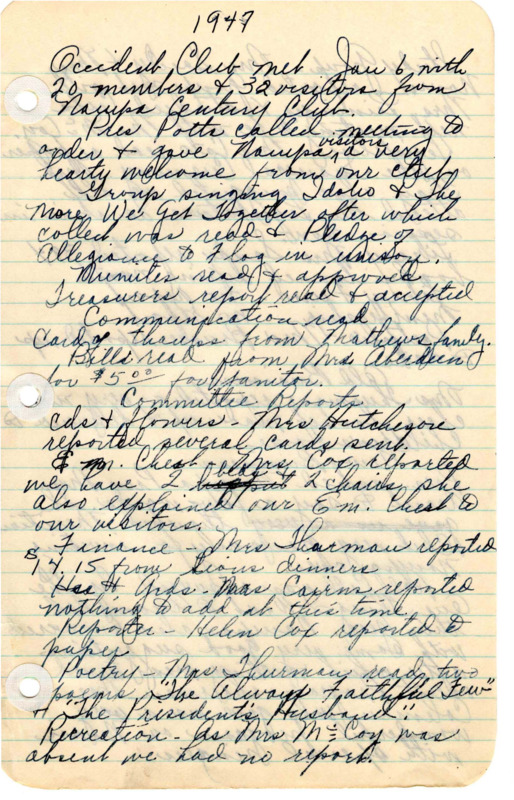 1947
Occident Club met Jan 6 with
20 members & 32 visitors from
Nampa Century Club.
Pres Potts called meeting to
order & gave Nampa visitors, a very
hearty welcome from our club
Group singing Idaho & The
More We Get Together after which
collect was read & Pledge of
Allegiance to Flag in unison.
Munites read & approved
Treasurers report read & accepted
Communication read
Card of thanks from Mathews family.
Bills read from Mrs Aberdeen
for $5.00 for Janitor.
Committee Reports
Cds & flowers - Mrs Hutcheson
reported several cards sent.
Em. Chest - Mrs Cox reported
we have 2 beds 2 chairs, she
also explained our Em. Chest to
our visitors.
Finance - Mrs Thurman reported
$14.15 from Lions dinners
H Grds - Mrs Cairns reported
nothing to add at this time
Reporter - Helen Cox reported to
paper
Poetry - Mrs Thurman read two
poems "The Always Faithful Few"
& "The President's Husband".
Recreation - as Mrs McCoy was
absent we had no report.